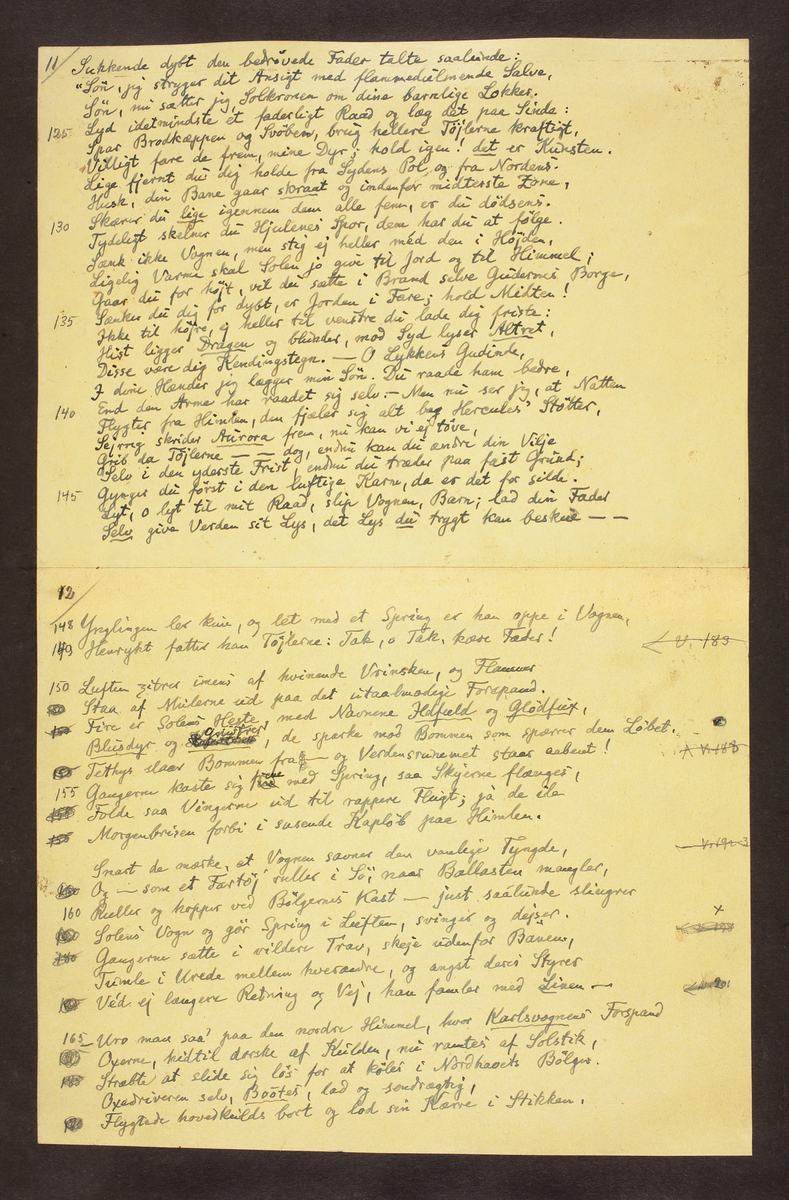 11
Sukkende dybt den bedrøvede Fader talte saalunde:
"Søn, jeg stryger dit Ansigt med flammedulmende Salve,
Søn, nu sætter jeg Solkronen om dine barnlige Lokker.
Lyd idetmindste et faderligt Raad og læg det paa Sinde:
125 Spar Brodkæppen og Svøben, brug hellere Töjlerne kraftigt,
Villigt fare de frem, mine Dyr; hold igen! det er Kunsten.
Lige fjernt du dig holde fra Sydens Pol og fra Nordens.
Husk, din Bane gaar skraat og indenfor midterste Zone,
Skærer du lige igennem dem alle fem, er du dødsens.
130 Tydeligt skelner du Hjulenes Spor, dem har du at følge.
Sænk ikke Vognen, men stig ej heller med den i Højden,
Ligelig Varme skal Solen jo give til Jord og til Himmel;
Gaar du for højt, vil du sætte i Brand selve Gudernes Borge,
Sænker du dig for dybt, er Jorden i Fare; hold Midten!
135 Ikke til højre, ej heller til venstre du lade dig friste:
Hist ligger Dragen og blunder, mod Syd lyser Altret,
Disse være dig Kendingstegn. — O Lykkens Gudinde,
I dine Hænder jeg lægger min Søn. Du raade ham bedre,
End den Arme har raadet sig selv. — Men nu ser jeg, at Natten
140 Flygter fra Himlen, den fjæler sig alt bag Hercules' Støtter,
Sejrrig skrider Aurora frem, nu kan vi ej tøve,
Grib da Töjlerne — — dog, endnu kan du ændre din Vilje
Selv i den yderste Frist, endnu du træder paa fast Grund;
Gynger du først i den luftige Karm, da er det for silde.
145 Lyt, o lyt til mit Raad, slip Vognen, Barn; lad din Fader
Selv give Verden sit Lys, det Lys du trygt kan beskue — —
12
148 Ynglingen ler kun, og let med et Spring er han oppe i Vognen,
149 Henrykt fatter han Töjlerne: Tak, o Tak, kære Fader! V. 183
150 Luften zitrer imens af hvinende Vrinsken, og Flammer
Staa af Mulerne ud paa det utaalmodige Forspand.
Fire er Solens Heste, med Navnene Ildfuld og Glødfux,
Blusdyr og, de sparke mod Bommen som spærrer dem Løbet.
Tethys slaar Bommen fra — og Verdensrummet staar aabent!
155 Gangerne kaste sig frem med Spring, saa Skyerne flænges,
Folde saa Vingerne ud til rappere Flugt; ja de ile
Morgenbrisen forbi i susende Kapløb paa Himlen.
Snart de mærke, at Vognen savner den vanlige Tyngde,
Og — som et Fartöj ruller i Sö, naar Ballasten mangler,
160 Ruller og hopper ved Bølgernes Kast — just saalunde slingrer
Solens Vogn og gør Spring i Luften, svinger og dejser. x
Gangerne sætte i vildere Trav, skeje udenfor Banen,
Tumle i Vrede mellem hverandre, og angst deres Styrer
Véd ej længere Retning og Vej, han famler med Linen —
165 Uro man saa' paa den nordre Himmel, hvor Karlsvognens Forspand
Oxerne, hidtil dorske af Kulden, nu ramtes af Solstik,
Stræbte at slide sig løs for at køles i Nordhavets Bølger.
Oxedriveren selv, Boótes, lad og sendrægtig,
Flygtede hovedkulds bort og lod sin Kærre i Stikken.